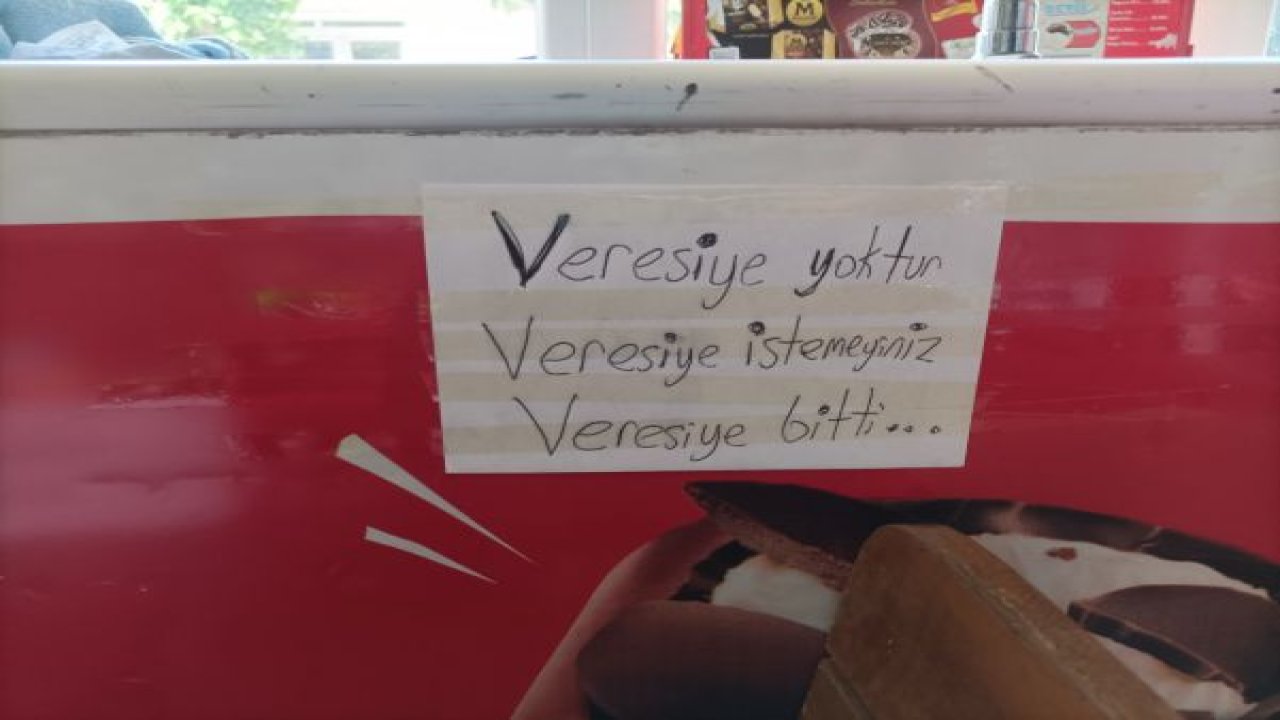 Veresiye yoktur
Veresiye istemeyiniz
Veresiye bitti...